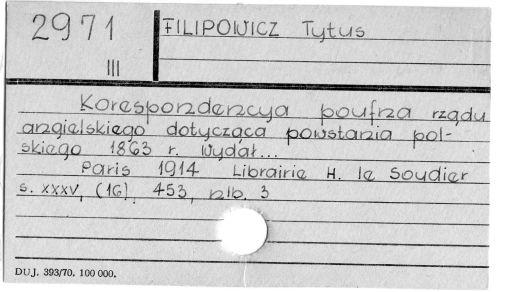 2971
III
FILIPOWICZ Tytus
Korespondencya poufna rządu
angielskiego dotycząca powstania pol-
skiego 1863 r. Wydał...
Paris 1914 Librairie H. le Soudier
s. XXXV, (16), 453, nlb. 3
DUJ. 393/70. 100 000.